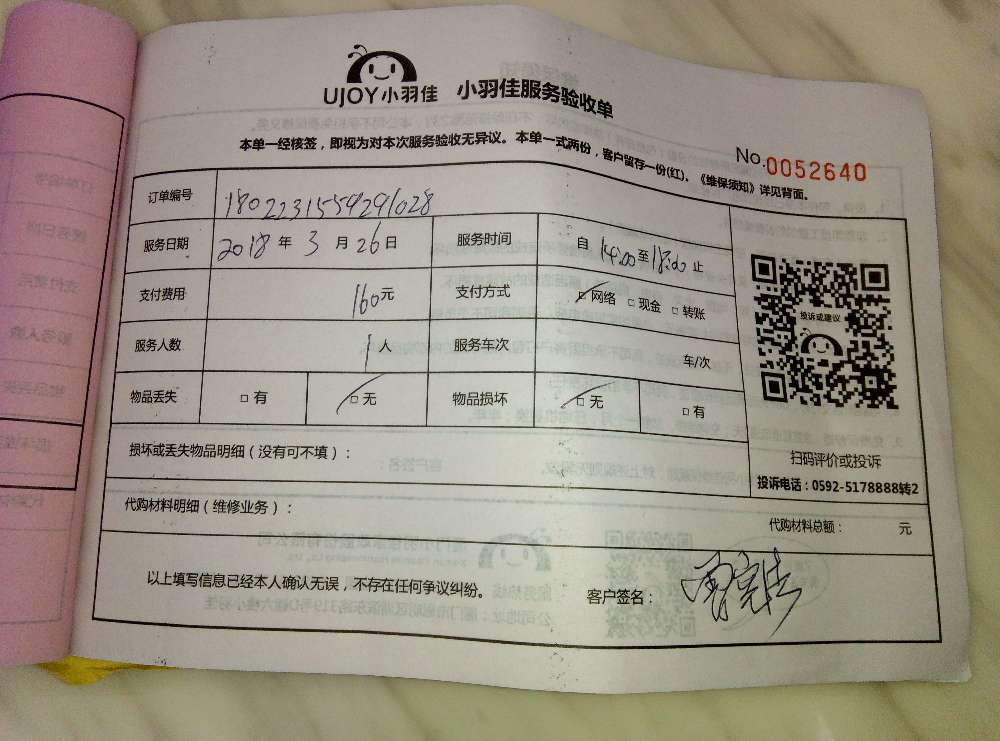 UJOY小羽佳 小羽佳服务验收单
本单一经核签，即视为对本次服务验收无异议。本单一式两份，客户留存一份(红)。《维保须知》详见背面。
No.0052640
订单编号 18022315594291028
服务日期 2018 年 3 月 26 日 服务时间 自 14:00 至 18:00 止
支付费用 160 元 支付方式 □ 网络 □ 现金 □ 转账
服务人数 1 人 服务车次 车/次
物品丢失 □ 有 □ 无 物品损坏 □ 无 □ 有
投诉或建议
扫码评价或投诉
投诉电话：0592-5178888转2
损坏或丢失物品明细（没有可不填）：
代购材料明细（维修业务）：
代购材料总额： 元
以上填写信息已经本人确认无误，不存在任何争议纠纷。 客户签名：